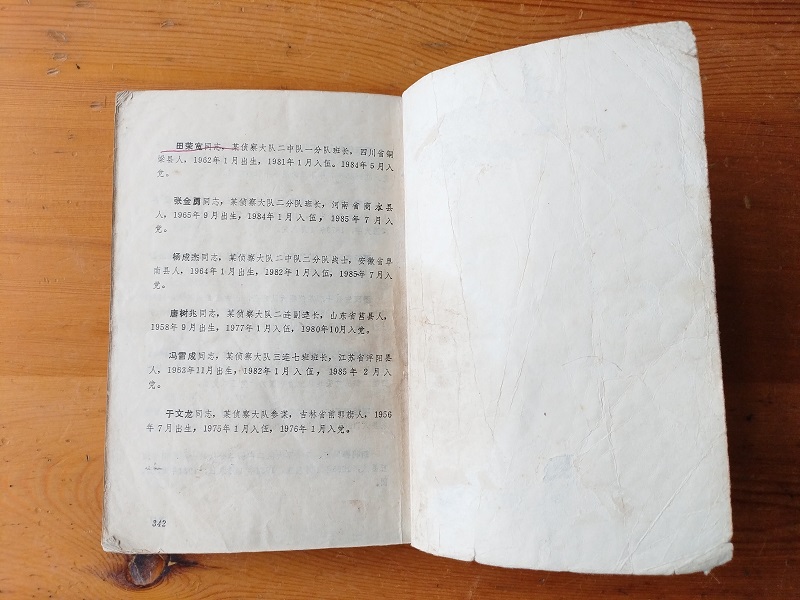 田荣宽同志，某侦察大队二中队一分队班长，四川省铜
梁县人，1962年1月出生，1981年1月入伍。1984年5月入
党。
张金勇同志，某侦察大队二分队班长，河南省商水县
人，1965年9月出生，1984年1月入伍，1985年7月入
党。
杨成杰同志，某侦察大队二中队二分队战士，安徽省阜
南县人，1964年1月出生，1982年1月入伍，1985年7月入
党。
唐树兆同志，某侦察大队二连副连长，山东省莒县人，
1958年9月出生，1977年1月入伍，1980年10月入党。
冯雷成同志，某侦察大队三连七班班长，江苏省沭阳县
人，1963年11月出生，1982年1月入伍，1985年2月入
党。
于文龙同志，某侦察大队参谋，吉林省前郭旗人，1956
年7月出生，1975年1月入伍，1976年1月入党。
342